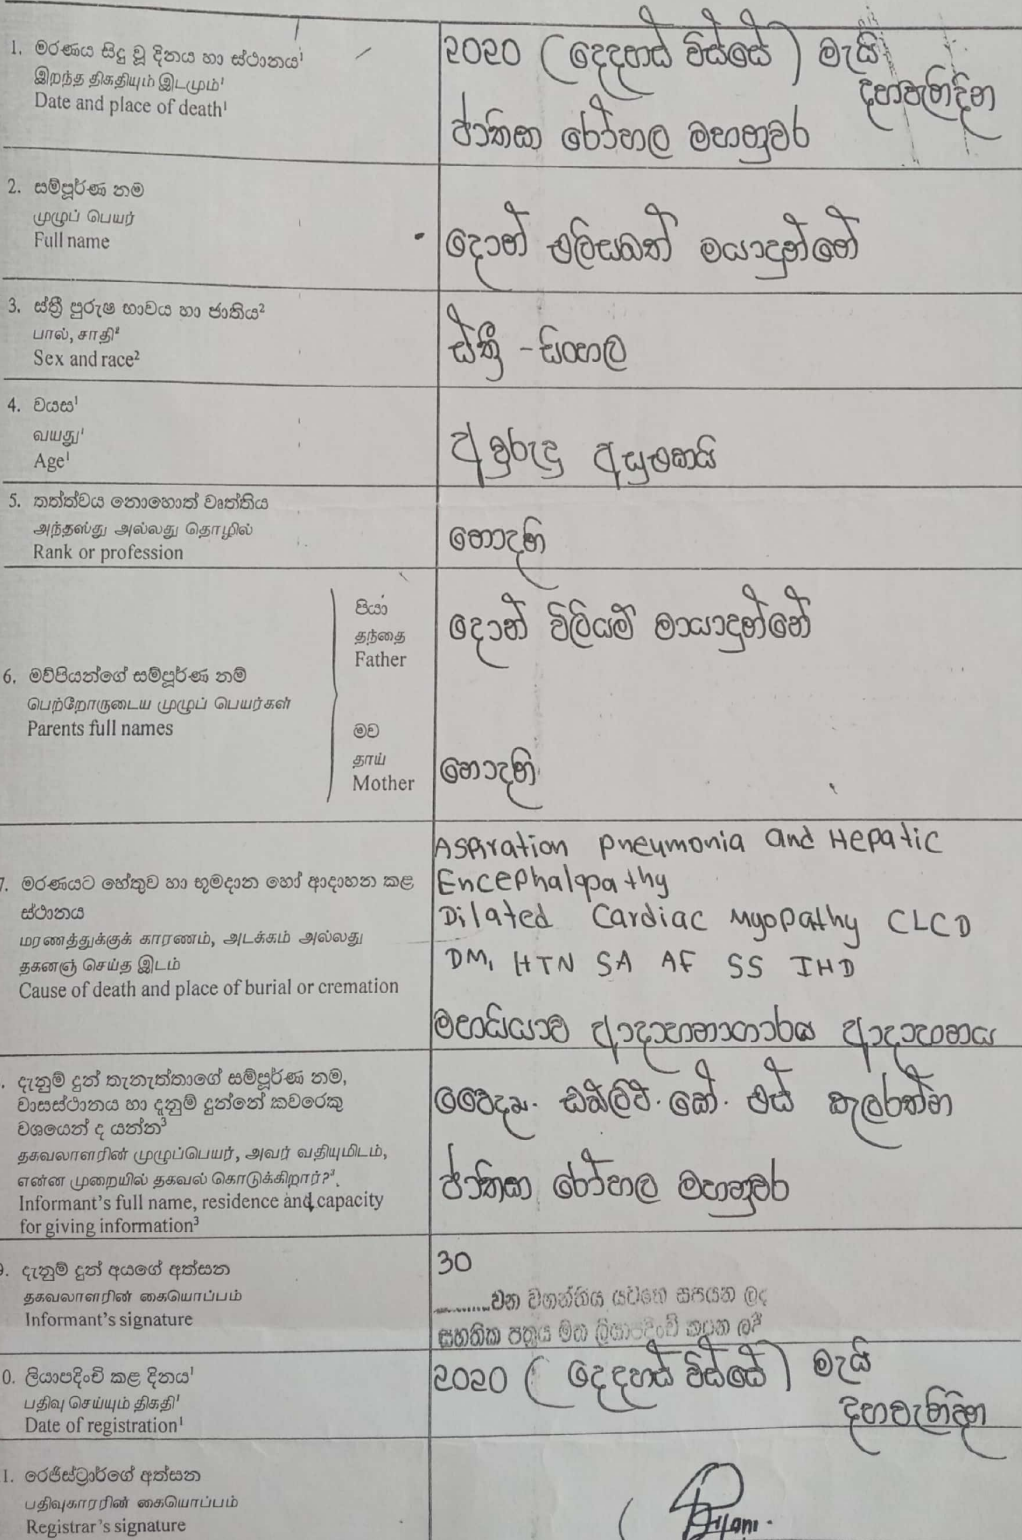 1. මරණය සිදු වූ දිනය හා ස්ථානය¹
இறந்த திகதியும் இடமும்¹
Date and place of death¹
2020 (දෙදහස් විස්සේ) මැයි
ජාතික රෝහල මහනුවර
2. සම්පූර්ණ නම
முழுப் பெயர்
Full name
දොන් එලිසබත් මයාදුන්නේ
3. ස්ත්‍රී පුරුෂ භාවය හා ජාතිය²
பால், சாதி²
Sex and race²
ස්ත්‍රී - සිංහල
4. වයස¹
வயது¹
Age¹
අවුරුදු අසූඑකයි
5. තත්ත්වය නොහොත් වෘත්තිය
அந்தஸ்து அல்லது தொழில்
Rank or profession
නොදනී
6. මව්පියන්ගේ සම්පූර්ණ නම්
பெற்றோருடைய முழுப் பெயர்கள்
Parents full names
පියා
தந்தை
Father
දොන් විලියම් මායාදුන්නේ
මව
தாய்
Mother
නොදනී
7. මරණයට හේතුව හා භූමදාන හෝ ආදාහන කළ
ස්ථානය
மரணத்துக்குக் காரணம், அடக்கம் அல்லது
தகனஞ் செய்த இடம்
Cause of death and place of burial or cremation
Aspiration pneumonia and Hepatic
Encephalopathy
Dilated Cardiac Myopathy CLCD
DM, HTN SA AF SS IHD
මහයියාව ආදාහනාගාරය ආදාහනය
. දැනුම් දුන් තැනැත්තාගේ සම්පූර්ණ නම,
වාසස්ථානය හා දැනුම් දුන්නේ කවරෙකු
වශයෙන් ද යන්න³
தகவலாளரின் முழுப்பெயர், அவர் வதியுமிடம்,
என்ன முறையில் தகவல் கொடுக்கிறார்?³.
Informant's full name, residence and capacity
for giving information³
වෛද්‍ය. ඩබ්ලිව්. කේ. එස් කුලරත්න
ජාතික රෝහල මහනුවර
9. දැනුම් දුන් අයගේ අත්සන
தகவலாளரின் கையொப்பம்
Informant's signature
30
..........වන වගන්තිය යටතේ සපයන ලද
සහතික පත්‍රය මත ලියාපදිංචි කරන ලදී
0. ලියාපදිංචි කළ දිනය¹
பதிவு செய்யும் திகதி¹
Date of registration¹
2020 (දෙදහස් විස්සේ) මැයි
දහවැනිදින
1. රෙජිස්ට්‍රාර්ගේ අත්සන
பதிவுகாரரின் கையொப்பம்
Registrar's signature